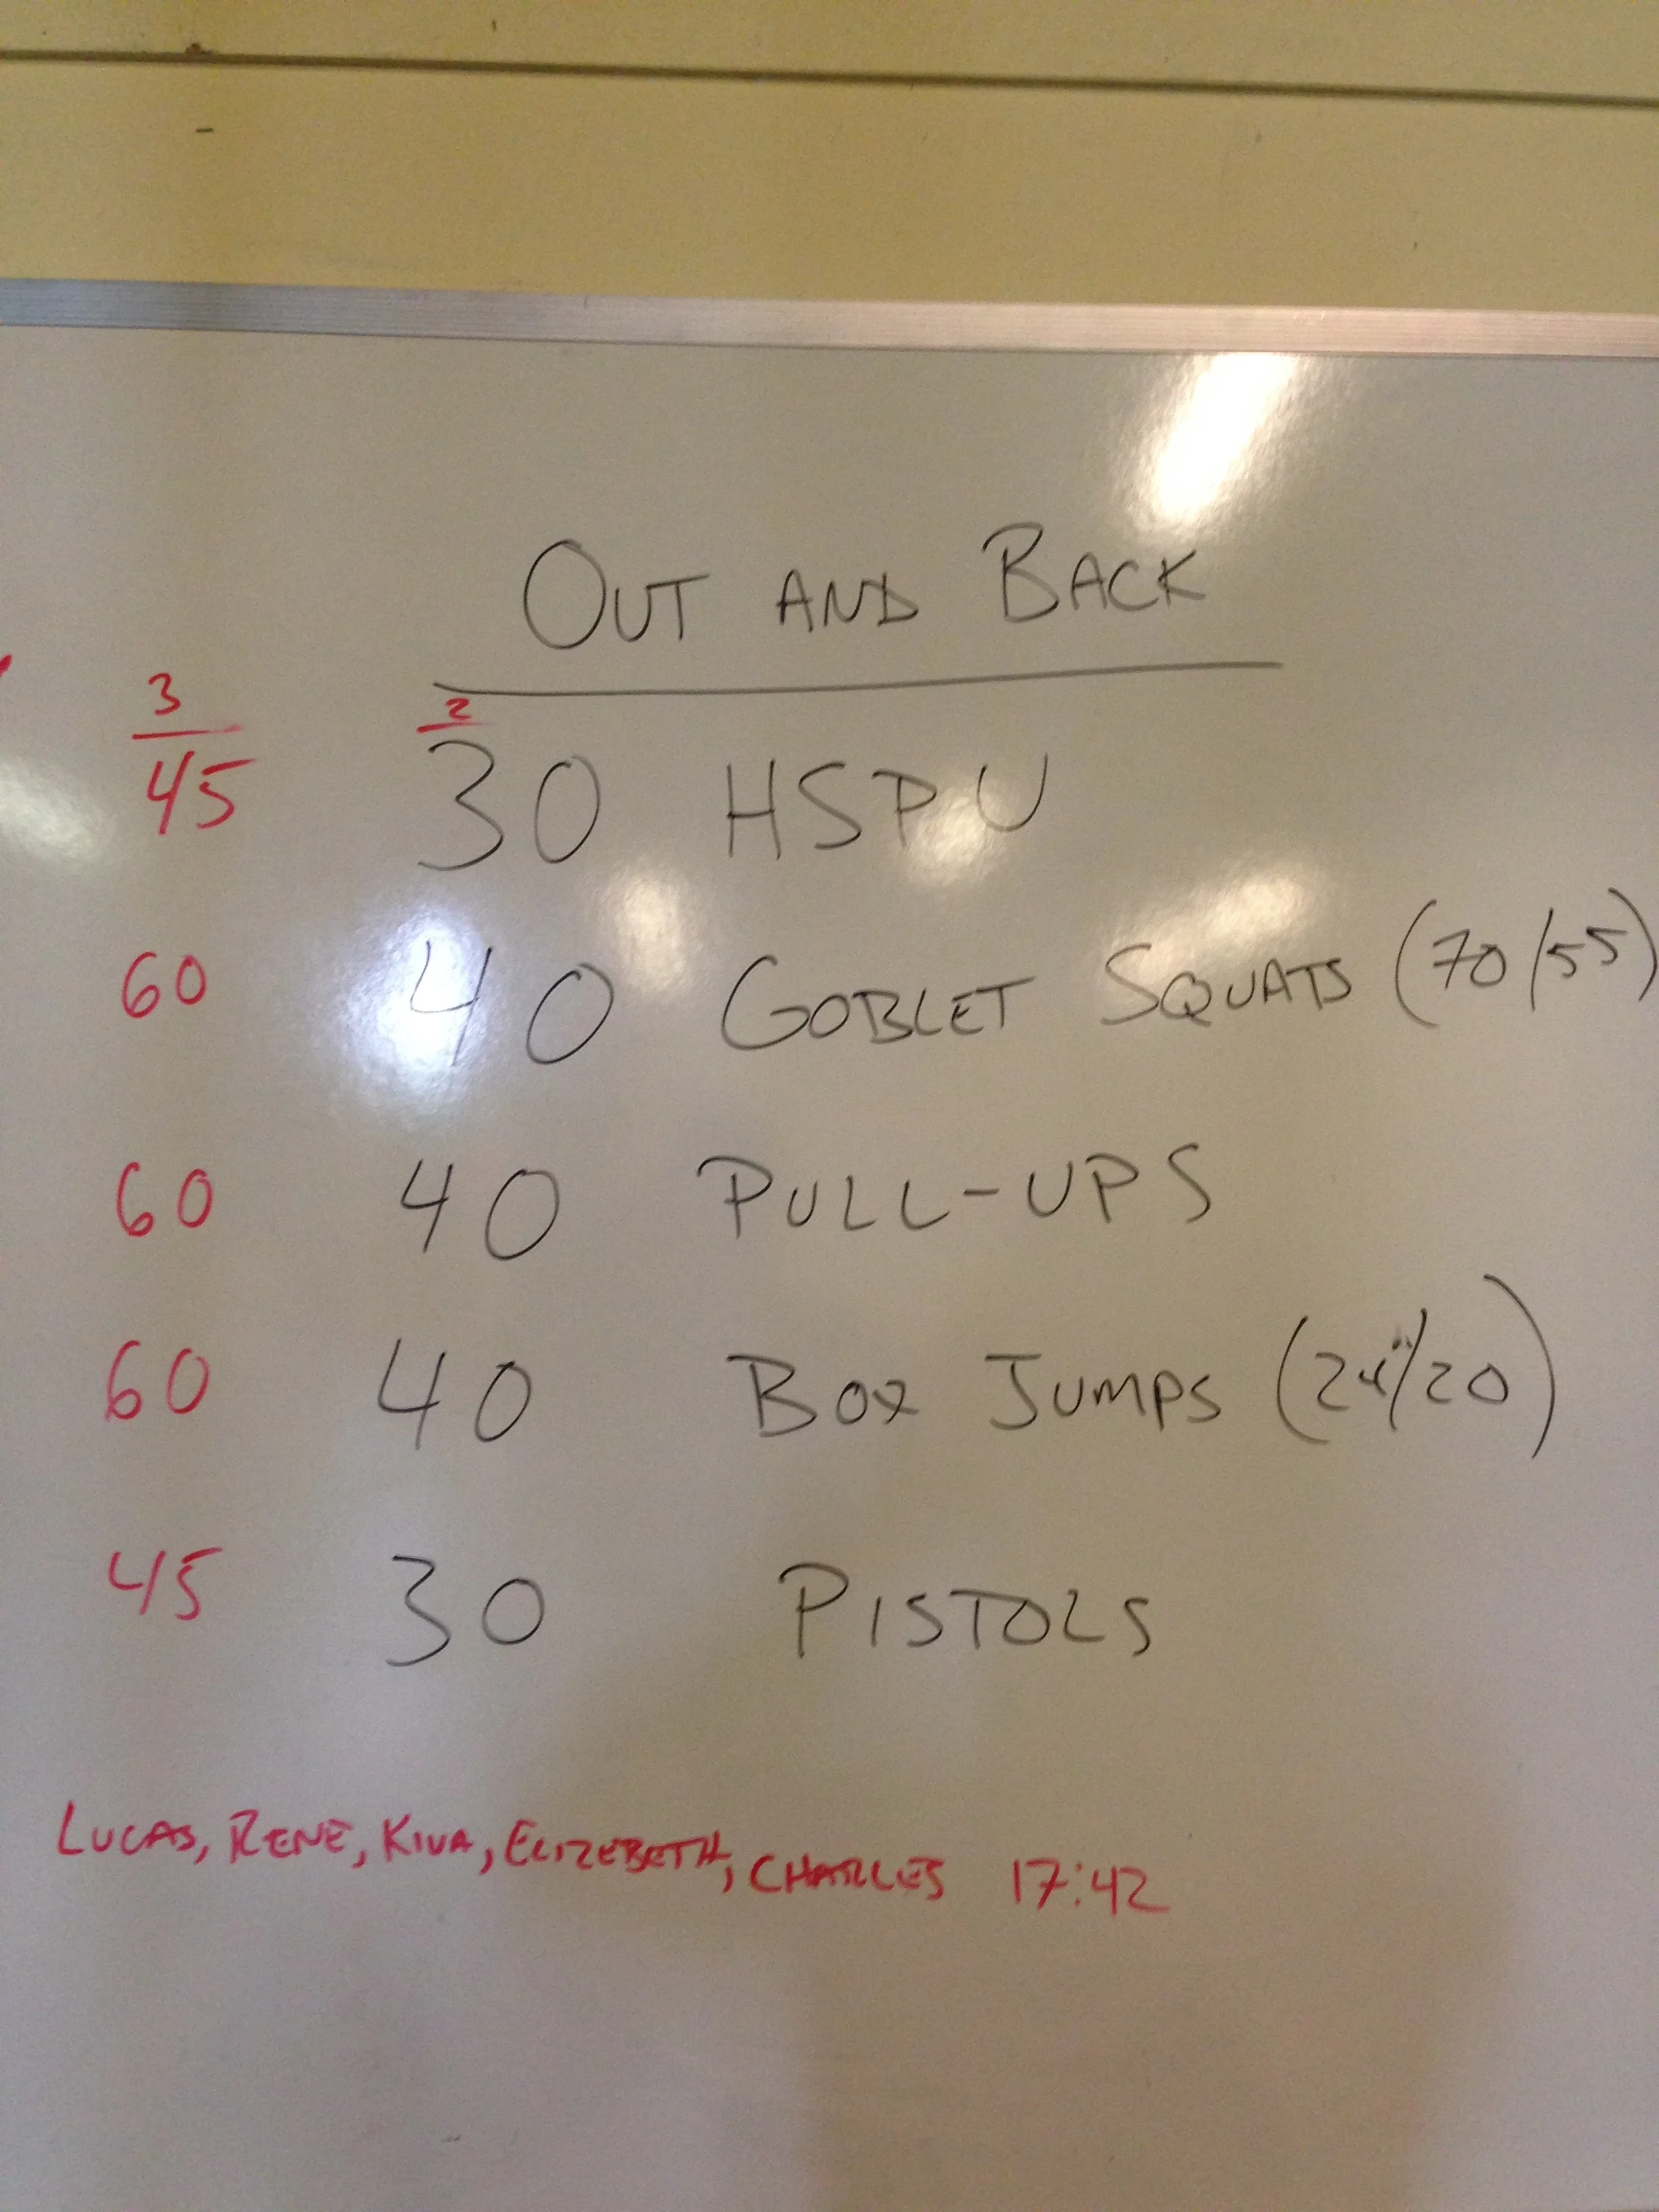 OUT AND BACK
3 2
45 30 HSPU
60 40 GOBLET SQUATS (70/55)
60 40 PULL-UPS
60 40 BOX JUMPS (24"/20)
45 30 PISTOLS
LUCAS, RENE, KIVA, ELIZEBETH, CHARLES 17:42